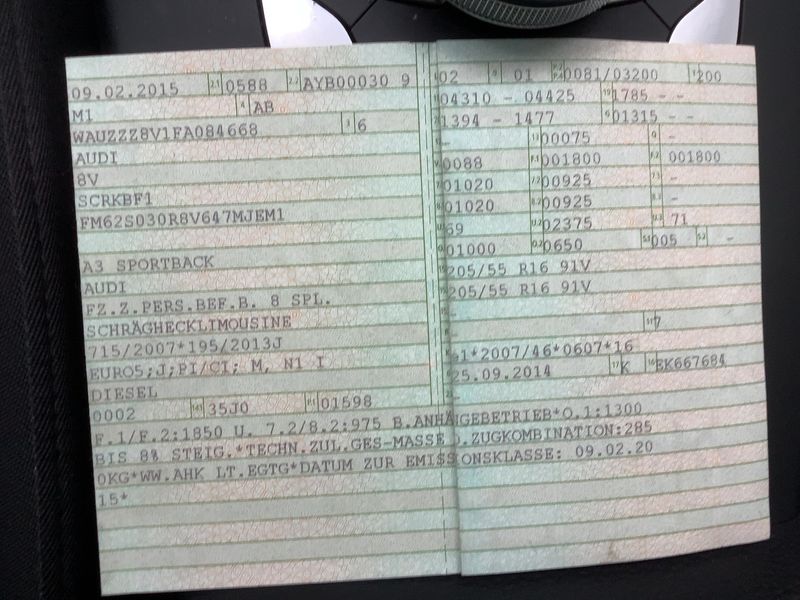 09.02.2015 2.1 0588 2.2 AYB00030 9
M1 4 AB
WAUZZZ8V1FA084668 3 6
AUDI
8V
SCRKBF1
FM62S030R8V647MJEM1
A3 SPORTBACK
AUDI
FZ.Z.PERS.BEF.B. 8 SPL.
SCHRÄGHECKLIMOUSINE
715/2007*195/2013J
EURO5;J;PI/CI; M, N1 I
DIESEL
0002 14.1 35J0 P.1 01598
02 9 01 0081/03200 200
04310 - 04425 1785 - -
1394 - 1477 01315 - -
- 00075 -
0088 001800 001800
01020 00925 -
01020 00925 -
69 02375 71
01000 0.2 0650 S.1 005 S.2 -
205/55 R16 91V
205/55 R16 91V
-
- 7
e1*2007/46*0607*16
25.09.2014 17 K 16 EK667684
F.1/F.2:1850 U. 7.2/8.2:975 B.ANHÄNGEBETRIEB*O.1:1300
BIS 8% STEIG.*TECHN.ZUL.GES-MASSE D.ZUGKOMBINATION:285
0KG*WW.AHK LT.EGTG*DATUM ZUR EMISSIONSKLASSE: 09.02.20
15*